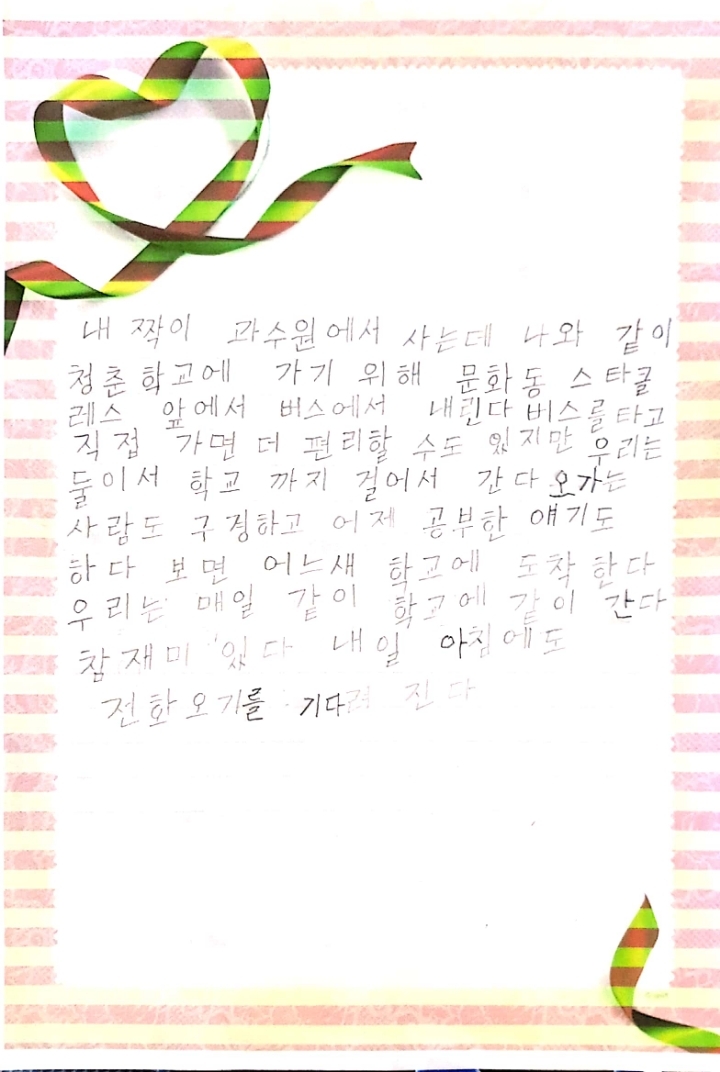 내 짝이 과수원에서 사는데 나와 같이
청춘학교에 가기 위해 문화동 스타클
레스 앞에서 버스에서 내린다 버스를타고
직접 가면 더 편리할 수도 있지만 우리는
둘이서 학교 까지 걸어서 간다 오가는
사람도 구경하고 어제 공부한 얘기도
하다 보면 어느새 학교에 도착 한다
우리는 매일 같이 학교에 같이 간다
참재미 있다 내일 아침에도
전화오기를 기다려 진다